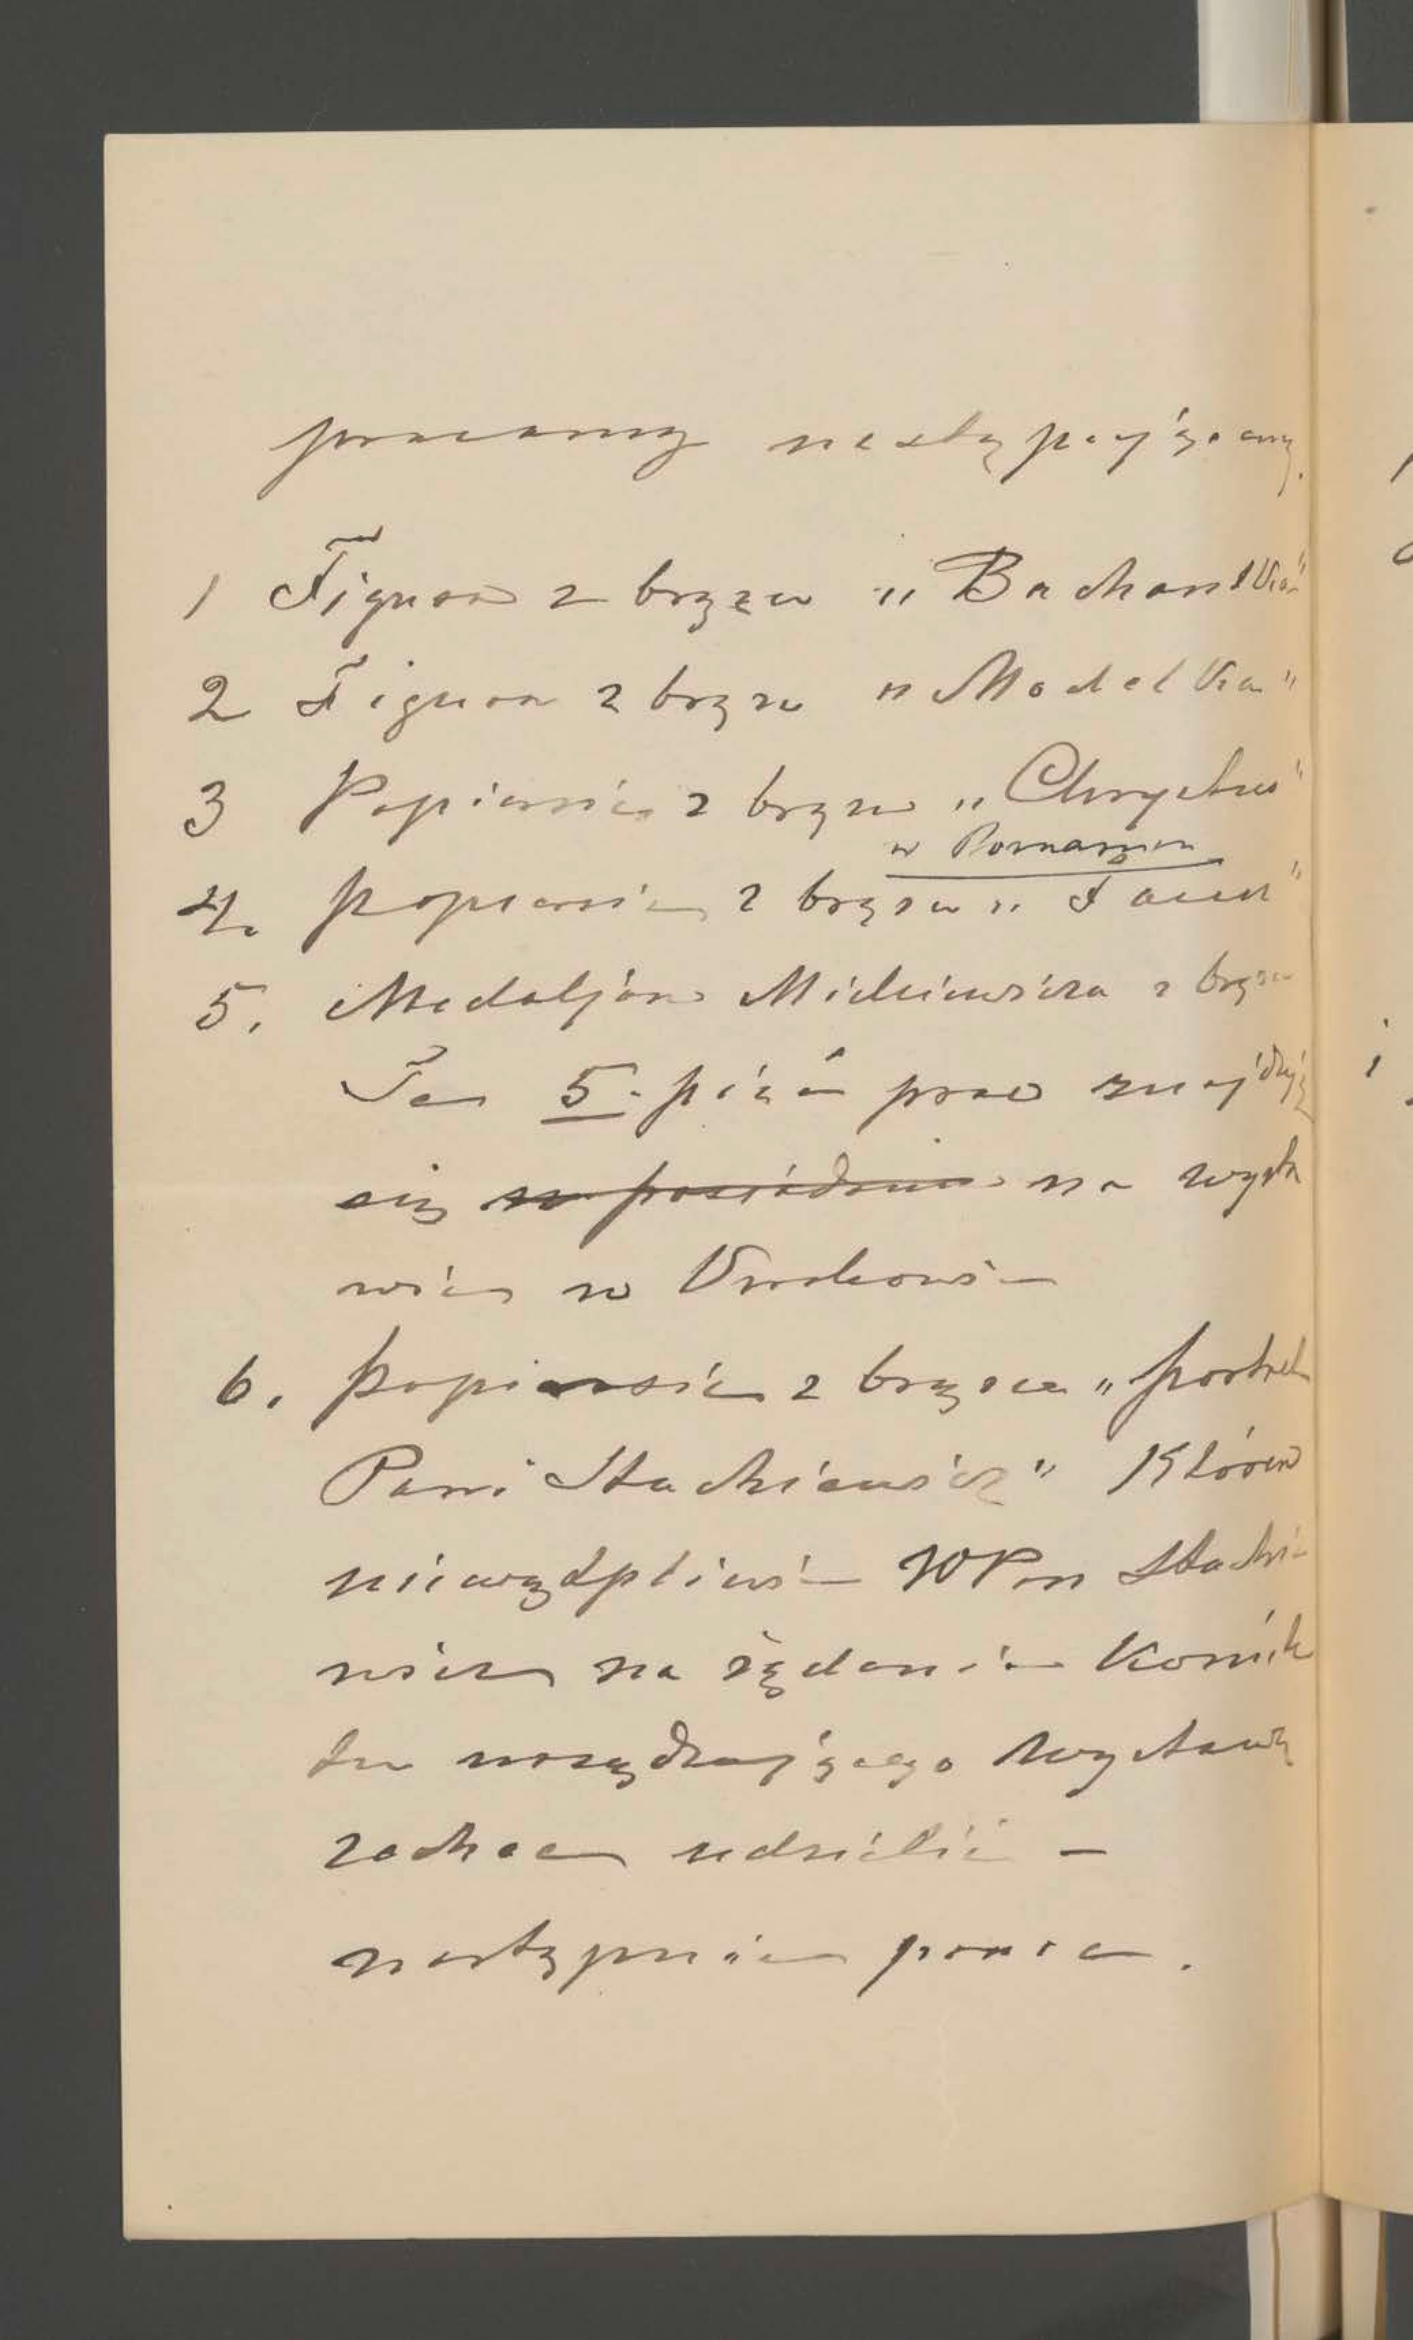 pracamy następującymy.
1 Figura z brązu „Bachantka"
2 Figura z brązu „Modelka"
3 Popiersie z brązu „Chrystus"
w Poznaniu
4. popiersie z brązu „Faun"
5. Medaljon Mickiewicza z brązu
Te 5. pięć prac znajdują
się w posiadaniu na wysta
wie w Krakowie
6. popiersie z brązu „portret
Pani Stachiewicz" które
niewątpliwie WPan Stachie
wicz na żądanie Komite
tu urządzającego Wystawę
zechce udzielić –
następnie prace.